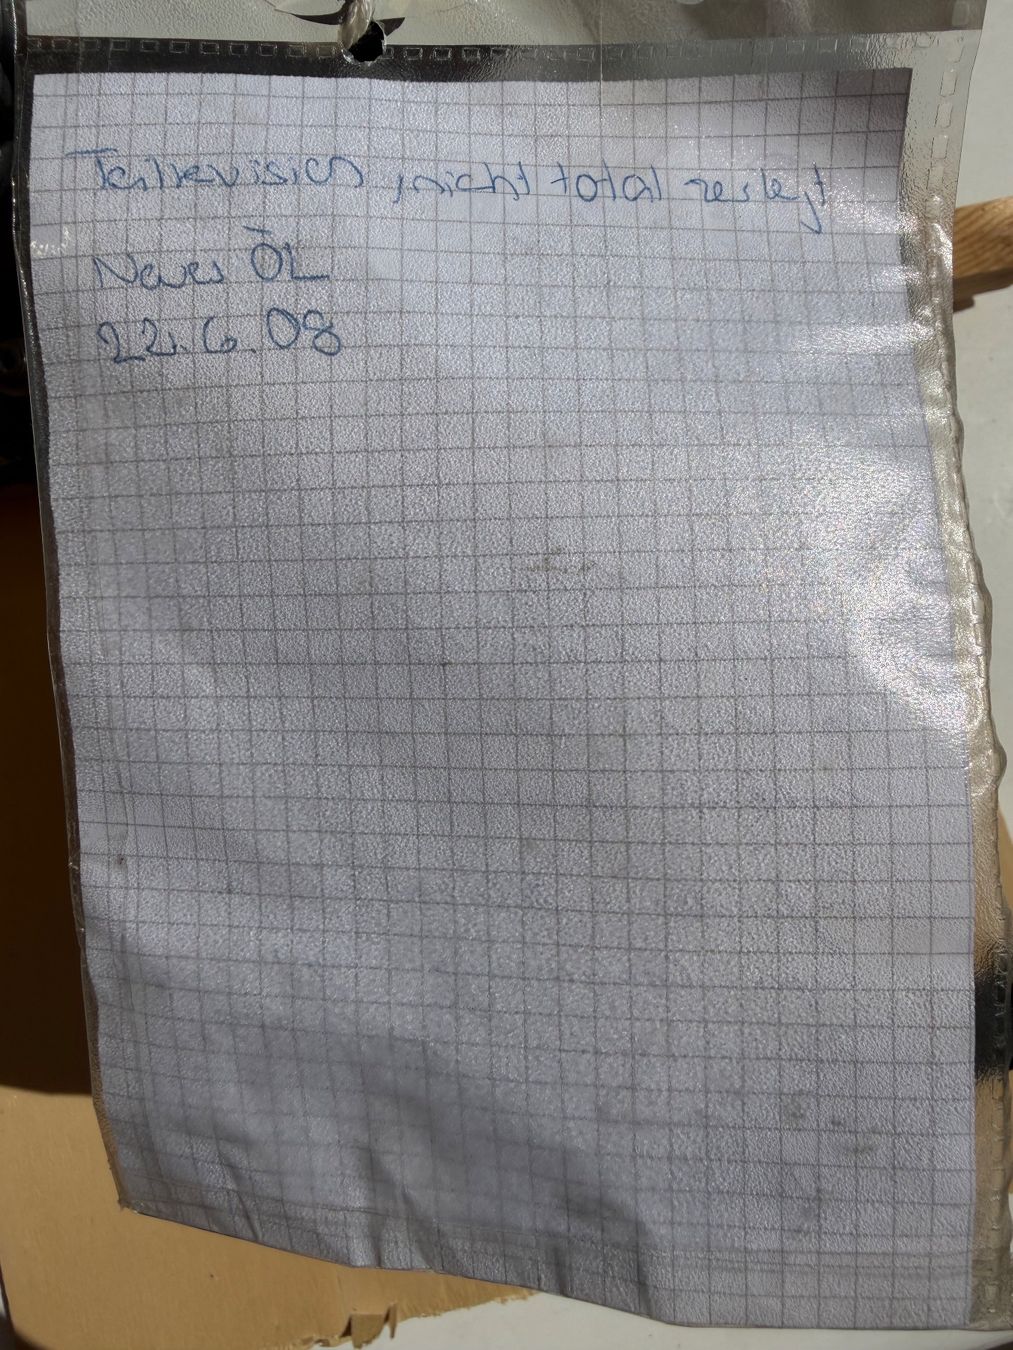 Teilrevision, nicht total zerlegt
Neues ÖL
22.6.08